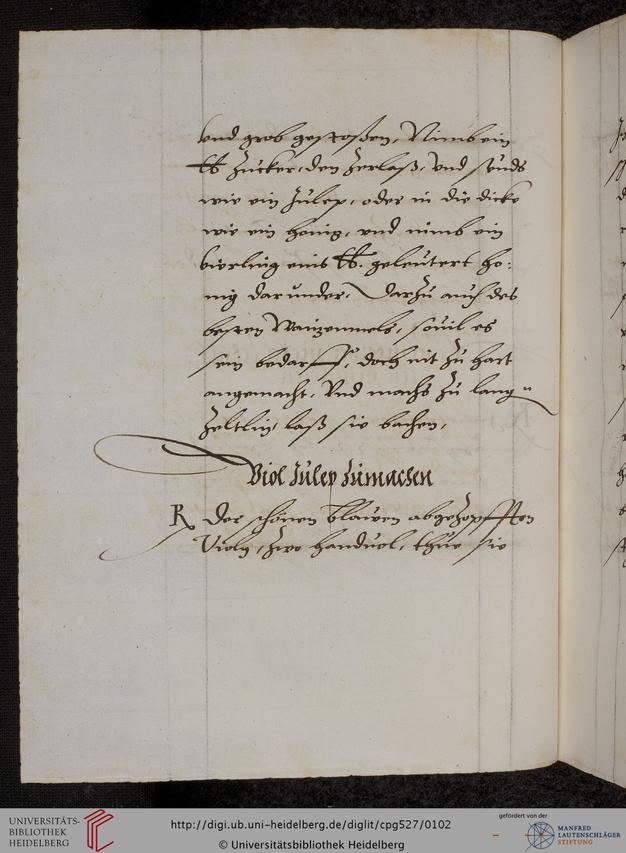 vnd grob gestossen, Nimb ein
lb Zucker, den Zerlaß, vnd seuds
wie ein Julep, oder in die dicke
wie ein honig, vnd nimb ein
vierling eins lb. geleutert ho:
nig darunder, Darzu auch des
besten Waizenmels, souil es
sein bedarff, doch nit zu hart
angemacht, Vnd machs zu lang
Zeltlin, laß sie bachen,
Viol Julep Zumachen
R Der schönen blawen abgezopfften
Violn, zwo handuol, thue sie
UNIVERSITÄTS-
BIBLIOTHEK
HEIDELBERG
http://digi.ub.uni-heidelberg.de/diglit/cpg527/0102
© Universitätsbibliothek Heidelberg
gefördert von der
MANFRED
LAUTENSCHLÄGER
STIFTUNG